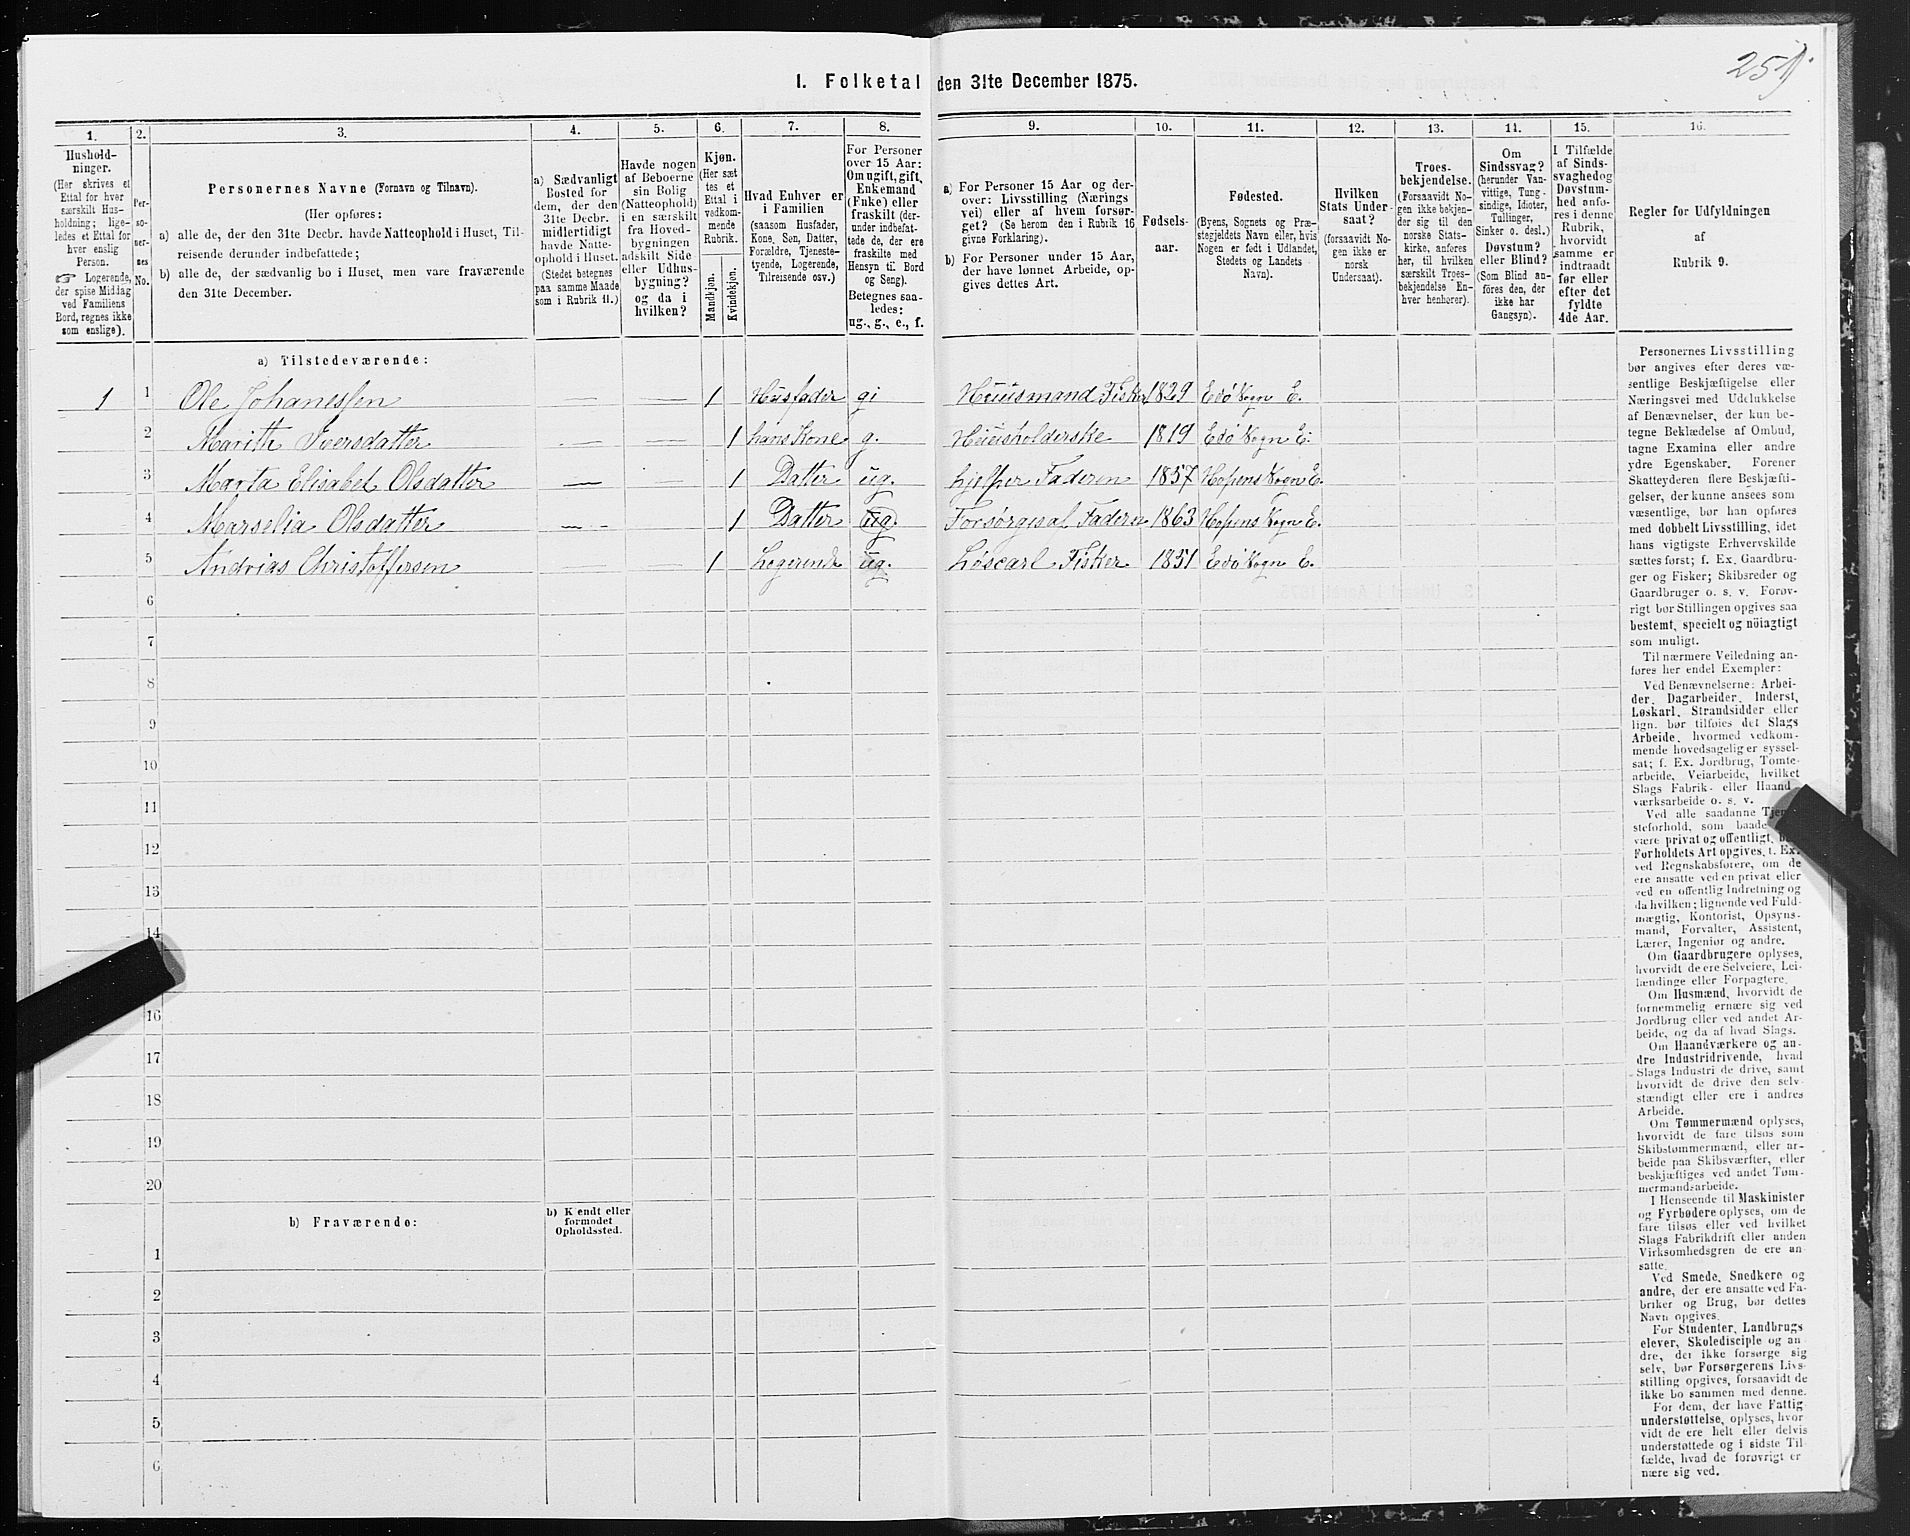 251
I. Folketal den 31te December 1875.
1. 2. 3. 4. 5. 6. 7. 8. 9. 10. 11. 12. 13. 14. 15. 16.
Hushold-
ninger.
(Her skrives et
Ettal for hver
særskilt Hus-
holdning; lige-
ledes et Ettal for
hver enslig
Person.
☞ Logerende,
der spise Middag
ved Familiens
Bord, regnes ikke
som enslige).
Per-
so-
ner-
nes
No.
Personernes Navne (Fornavn og Tilnavn).
(Her opføres:
a) alle de, der den 31te Decbr. havde Natteophold i Huset, Til-
reisende derunder indbefattede;
b) alle de, der sædvanlig bo i Huset, men vare fraværende
den 31te December.
a) Sædvanligt
Bosted for
dem, der den
31te Decbr.
midlertidigt
havde Natte-
ophold i Huset.
(Stedet betegnes
paa samme Maade
som i Rubrik 11.)
Havde nogen
af Beboerne
sin Bolig
(Natteophold)
i en særskilt
fra Hoved-
bygningen
adskilt Side
eller Udhus-
bygning?
og da i
hvilken?
Kjøn.
(Her sæt
tes et
Ettal i
vedkom-
mende
Rubrik.
Mandkjøn.
Kvindekjøn.
Hvad Enhver er
i Familien
(saasom Husfader,
Kone, Søn, Datter,
Forældre, Tjeneste-
tyende, Logerende,
Tilreisende osv.)
For Personer
over 15 Aar:
Om ugift, gift,
Enkemand
(Enke) eller
fraskilt (der-
under indbefat-
tede de, der ere
fraskilte med
Hensyn til Bord
og Seng).
Betegnes saa-
ledes:
ug., g., e., f.
a) For Personer 15 Aar og der-
over: Livsstilling (Nærings
vei) eller af hvem forsør-
get? (Se herom den i Rubrik 16
givne Forklaring).
b) For Personer under 15 Aar,
der have lønnet Arbeide, op-
gives dettes Art.
Fødsels-
aar.
Fødested.
(Byens, Sognets og Præ-
stegjeldets Navn eller, hvis
Nogen er født i Udlandet,
Stedets og Landets
Navn).
Hvilken
Stats Under-
saat?
(forsaavidt No-
gen ikke er
norsk
Undersaat).
Troes-
bekjendelse.
(Forsaavidt No-
gen ikke bekjen-
der sig til den
norske Stats-
kirke, anføres
her, til hvilken
særskilt Troes-
bekjendelse En-
hver henhører).
Om
Sindssvag?
(herunder Van-
vittige, Tung-
sindige, Idioter,
Tullinger,
Sinker o. desl.)
Døvstum?
eller Blind?
(Som Blind an-
føres den, der
ikke har
Gangsyn).
I Tilfælde
af Sinds-
svaghed og
Døvstum-
hed anfø-
res i denne
Rubrik,
hvorvidt
samme er
indtraadt
før eller
efter det
fyldte
4de Aar.
Regler for Udfyldningen
af
Rubrik 9.
a) Tilstedeværende:
1 1 Ole Johanessen — — 1 Husfader gi Huusmand Fisker 1829 Edø Sogn E.
2 Marith Iversdatter — — 1 hans Kone g. Huusholderske 1819 Edø Sogn E.
3 Marta Elisabet Olsdatter — — 1 Datter ug. hjelper Faderen 1857 Hopens Sogn E.
4 Marselia Olsdatter — 1 Datter ug. Forsørges af Faderen 1863 Hopens Sogn E.
5 Andrias Christoffersen — — 1 Logerende ug. Løscarl Fisker 1851 Edø Sogn E.
6
7
8
9
10
11
12
13
14
16
17
18
19
20
b) Fraværende:
b) Kjendt eller
formodet
Opholdssted.
1
2
3
4
5
6
Personernes Livsstilling
bør angives efter deres væ-
sentlige Beskjæftigelse eller
Næringsvei med Udelukkelse
af Benævnelser, der kun be-
tegne Beklædelse af Ombud,
tagne Examina eller andre
ydre Egenskaber. Forener
Skatteyderen flere Beskjæfti-
gelser, der kunne ansees som
væsentlige, bør han opføres
med dobbelt Livsstilling, idet
hans vigtigste Erhvervskilde
sættes først; f. Ex. Gaardbru-
ger og Fisker; Skibsreder og
Gaardbruger o. s. v. Forøv-
rigt bør Stillingen opgives saa
bestemt, specielt og nöiagtigt
som muligt.
Til nærmere Veiledning an-
føres her endel Exempler:
Ved Benævnelserne: Arbei-
der, Dagarbeider, Inderst,
Løskarl, Strandsidder eller
lign. bør tilføies det Slags
Arbeide, hvormed vedkom-
mende hovedsagelig er syssel-
sat; f. Ex. Jordbrug, Tomte-
arbeide, Veiarbeide, hvilket
Slags Fabrik- eller Haand-
værksarbeide o. s. v.
Ved alle saadanne Tjene-
steforhold, som baade
være privat og offentligt, bør
Forholdets Art opgives, f. Ex.
ved Regnskabsførere, om de
ere ansatte ved en privat eller
ved en offentlig Indretning og
da hvilken; lignende ved Fuld-
mægtig, Kontorist, Opsyns-
mand, Forvalter, Assistent,
Lærer, Ingeniør og andre.
Om Gaardbrugere oplyses,
hvorvidt de ere Selveiere, Lei-
lændinge eller Forpagtere.
Om Husmænd, hvorvidt de
fornemmelig ernære sig ved
Jordbrug eller ved andet Ar-
beide, og da af hvad Slags.
Om Haandværkere og an-
dre Industridrivende, hvad
Slags Industri de drive, samt
hvorvidt de drive den selv-
stændigt eller ere i andres
Arbeide.
Om Tømmermænd oplyses,
hvorvidt de fare tilsøs som
Skibstømmermænd, eller ar-
beide paa Skibsværfter, eller
beskjæftiges ved andet Tøm-
mermandsarbeide.
I Henseende til Maskinister
og Fyrbødere oplyses, om de
fare tilsøs eller ved hvilket
Slags Fabrikdrift eller anden
Virksomhedsgren de ere an-
satte.
Ved Smede, Snedkere og
andre, der ere ansatte ved Fa-
briker og Brug, bør dettes
Navn opgives.
For Studenter, Landbrugs
elever, Skoledisciple og an-
dre, der ikke forsørge sig
selv, bør Forsørgerens Livs-
stilling opgives, forsaavidt de
ikke bo sammen med denne.
For dem, der have Fattig-
understøttelse, oplyses, hvor
vidt de ere helt eller delvis
understøttede og i sidste Til-
fælde, hvad de forøvrigt er
nære sig ved.